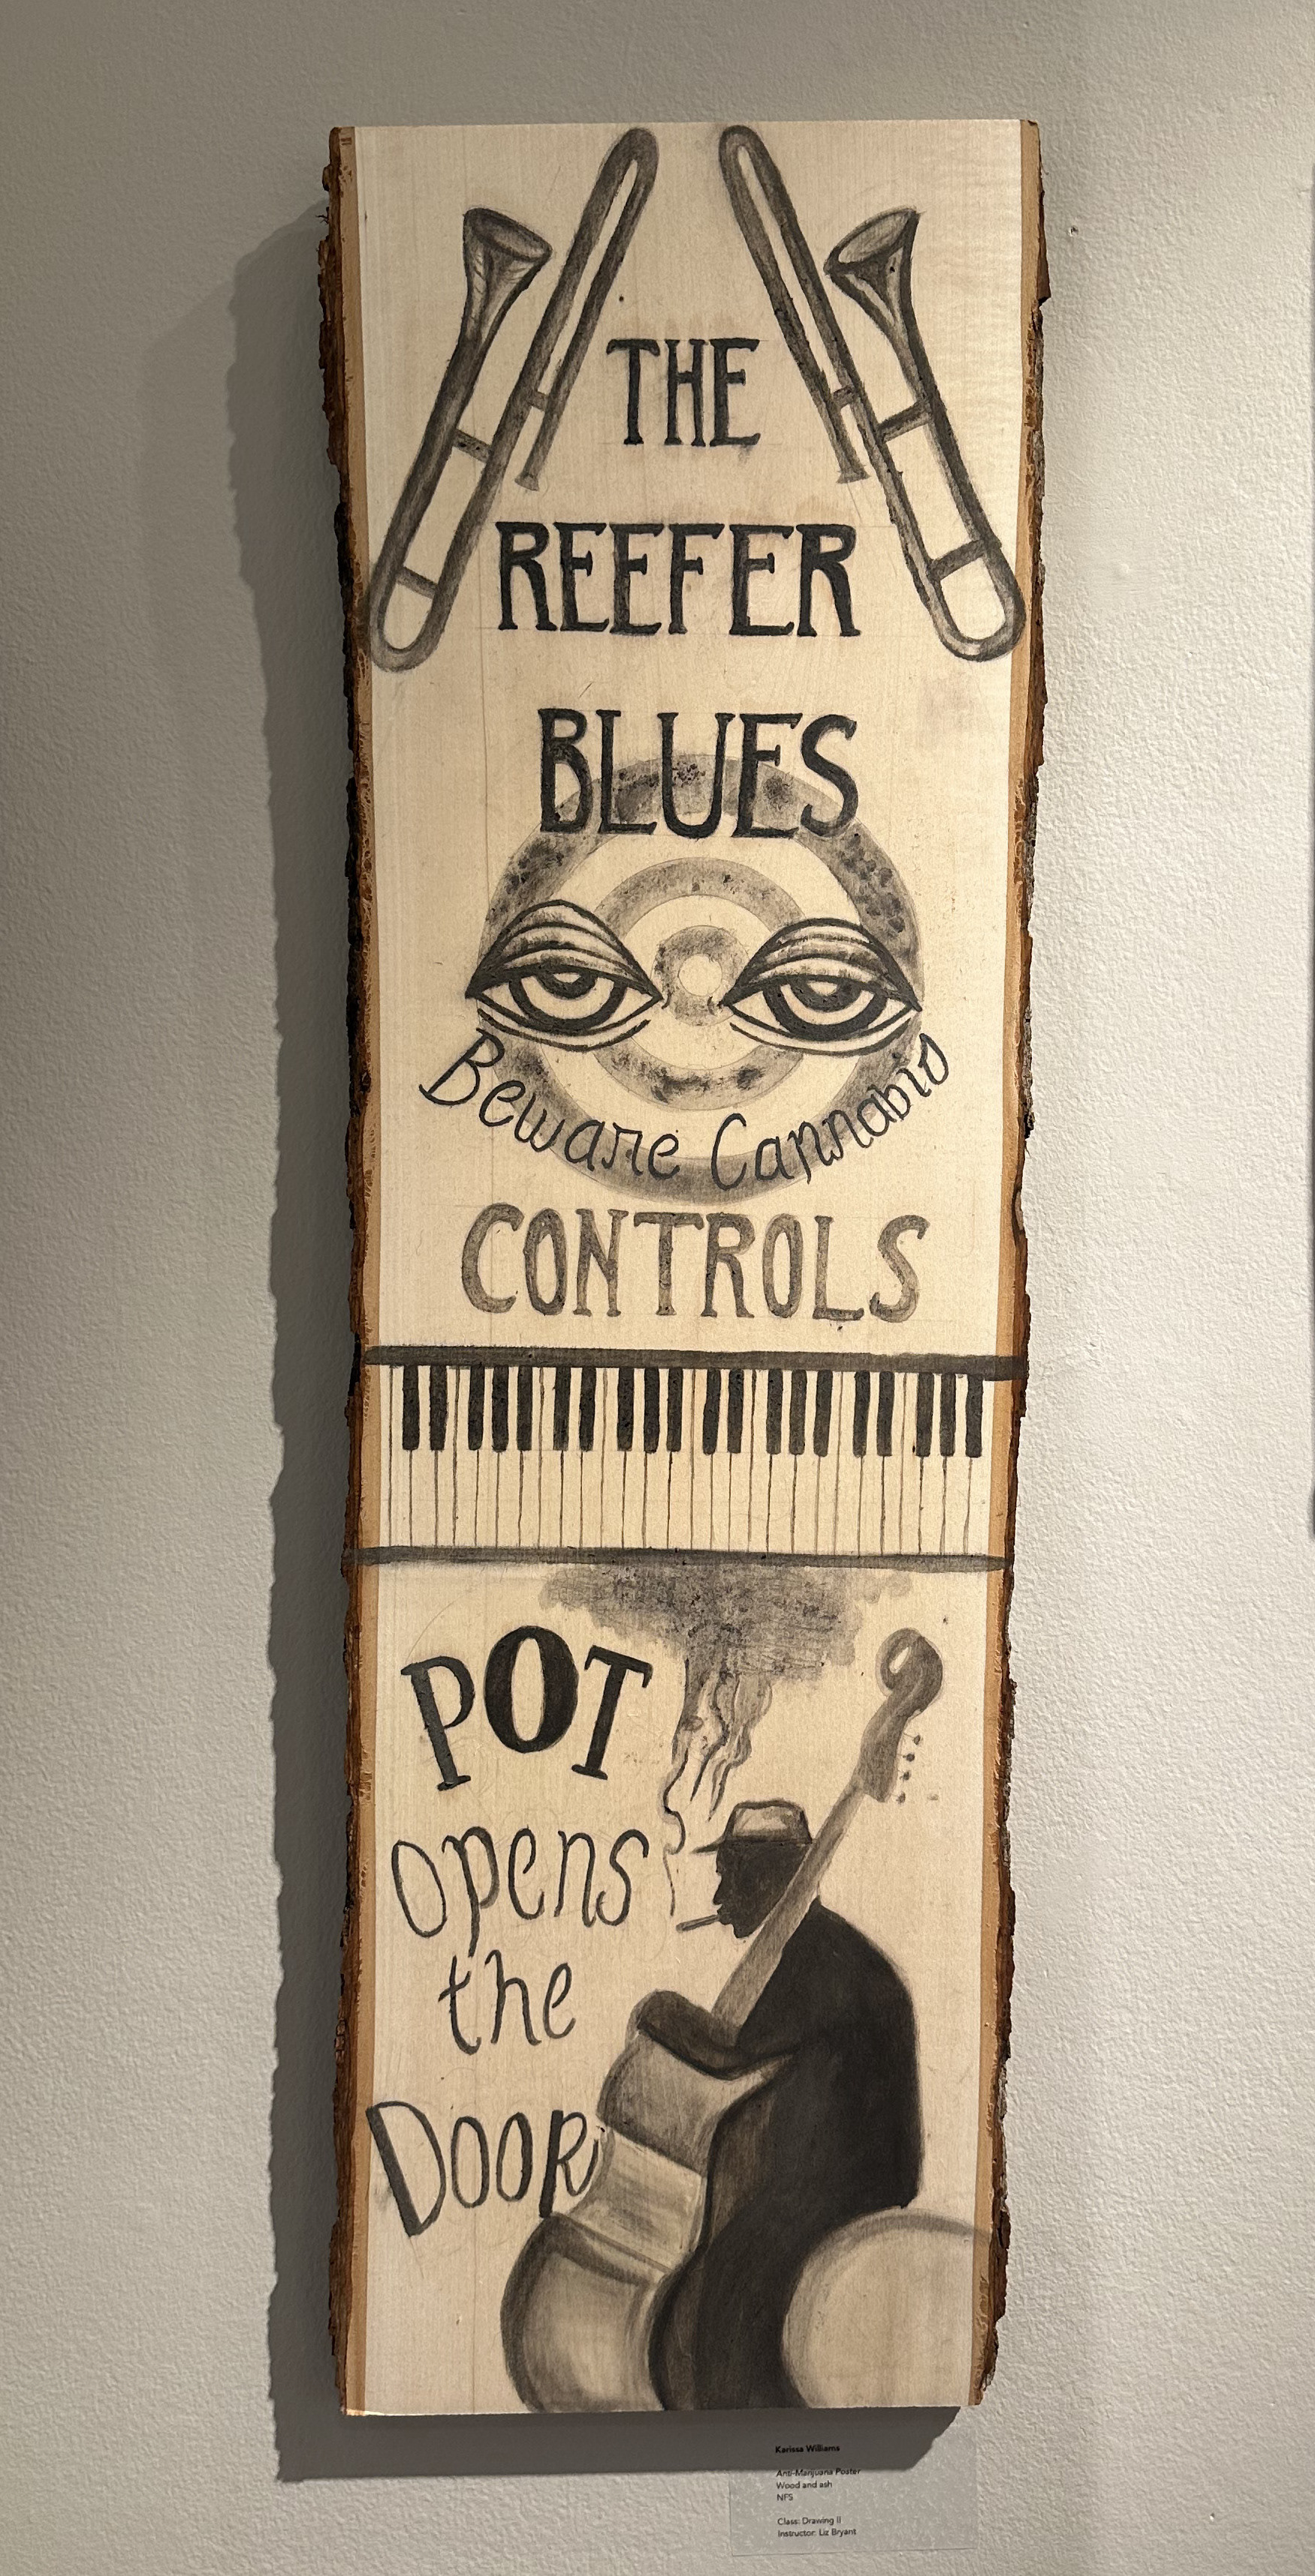 THE
REEFER
BLUES
Beware Cannabis
CONTROLS
POT
opens
the
DOOR
Karissa Williams
Anti-Marijuana Poster
Wood and ash
NFS
Class: Drawing II
Instructor: Liz Bryant